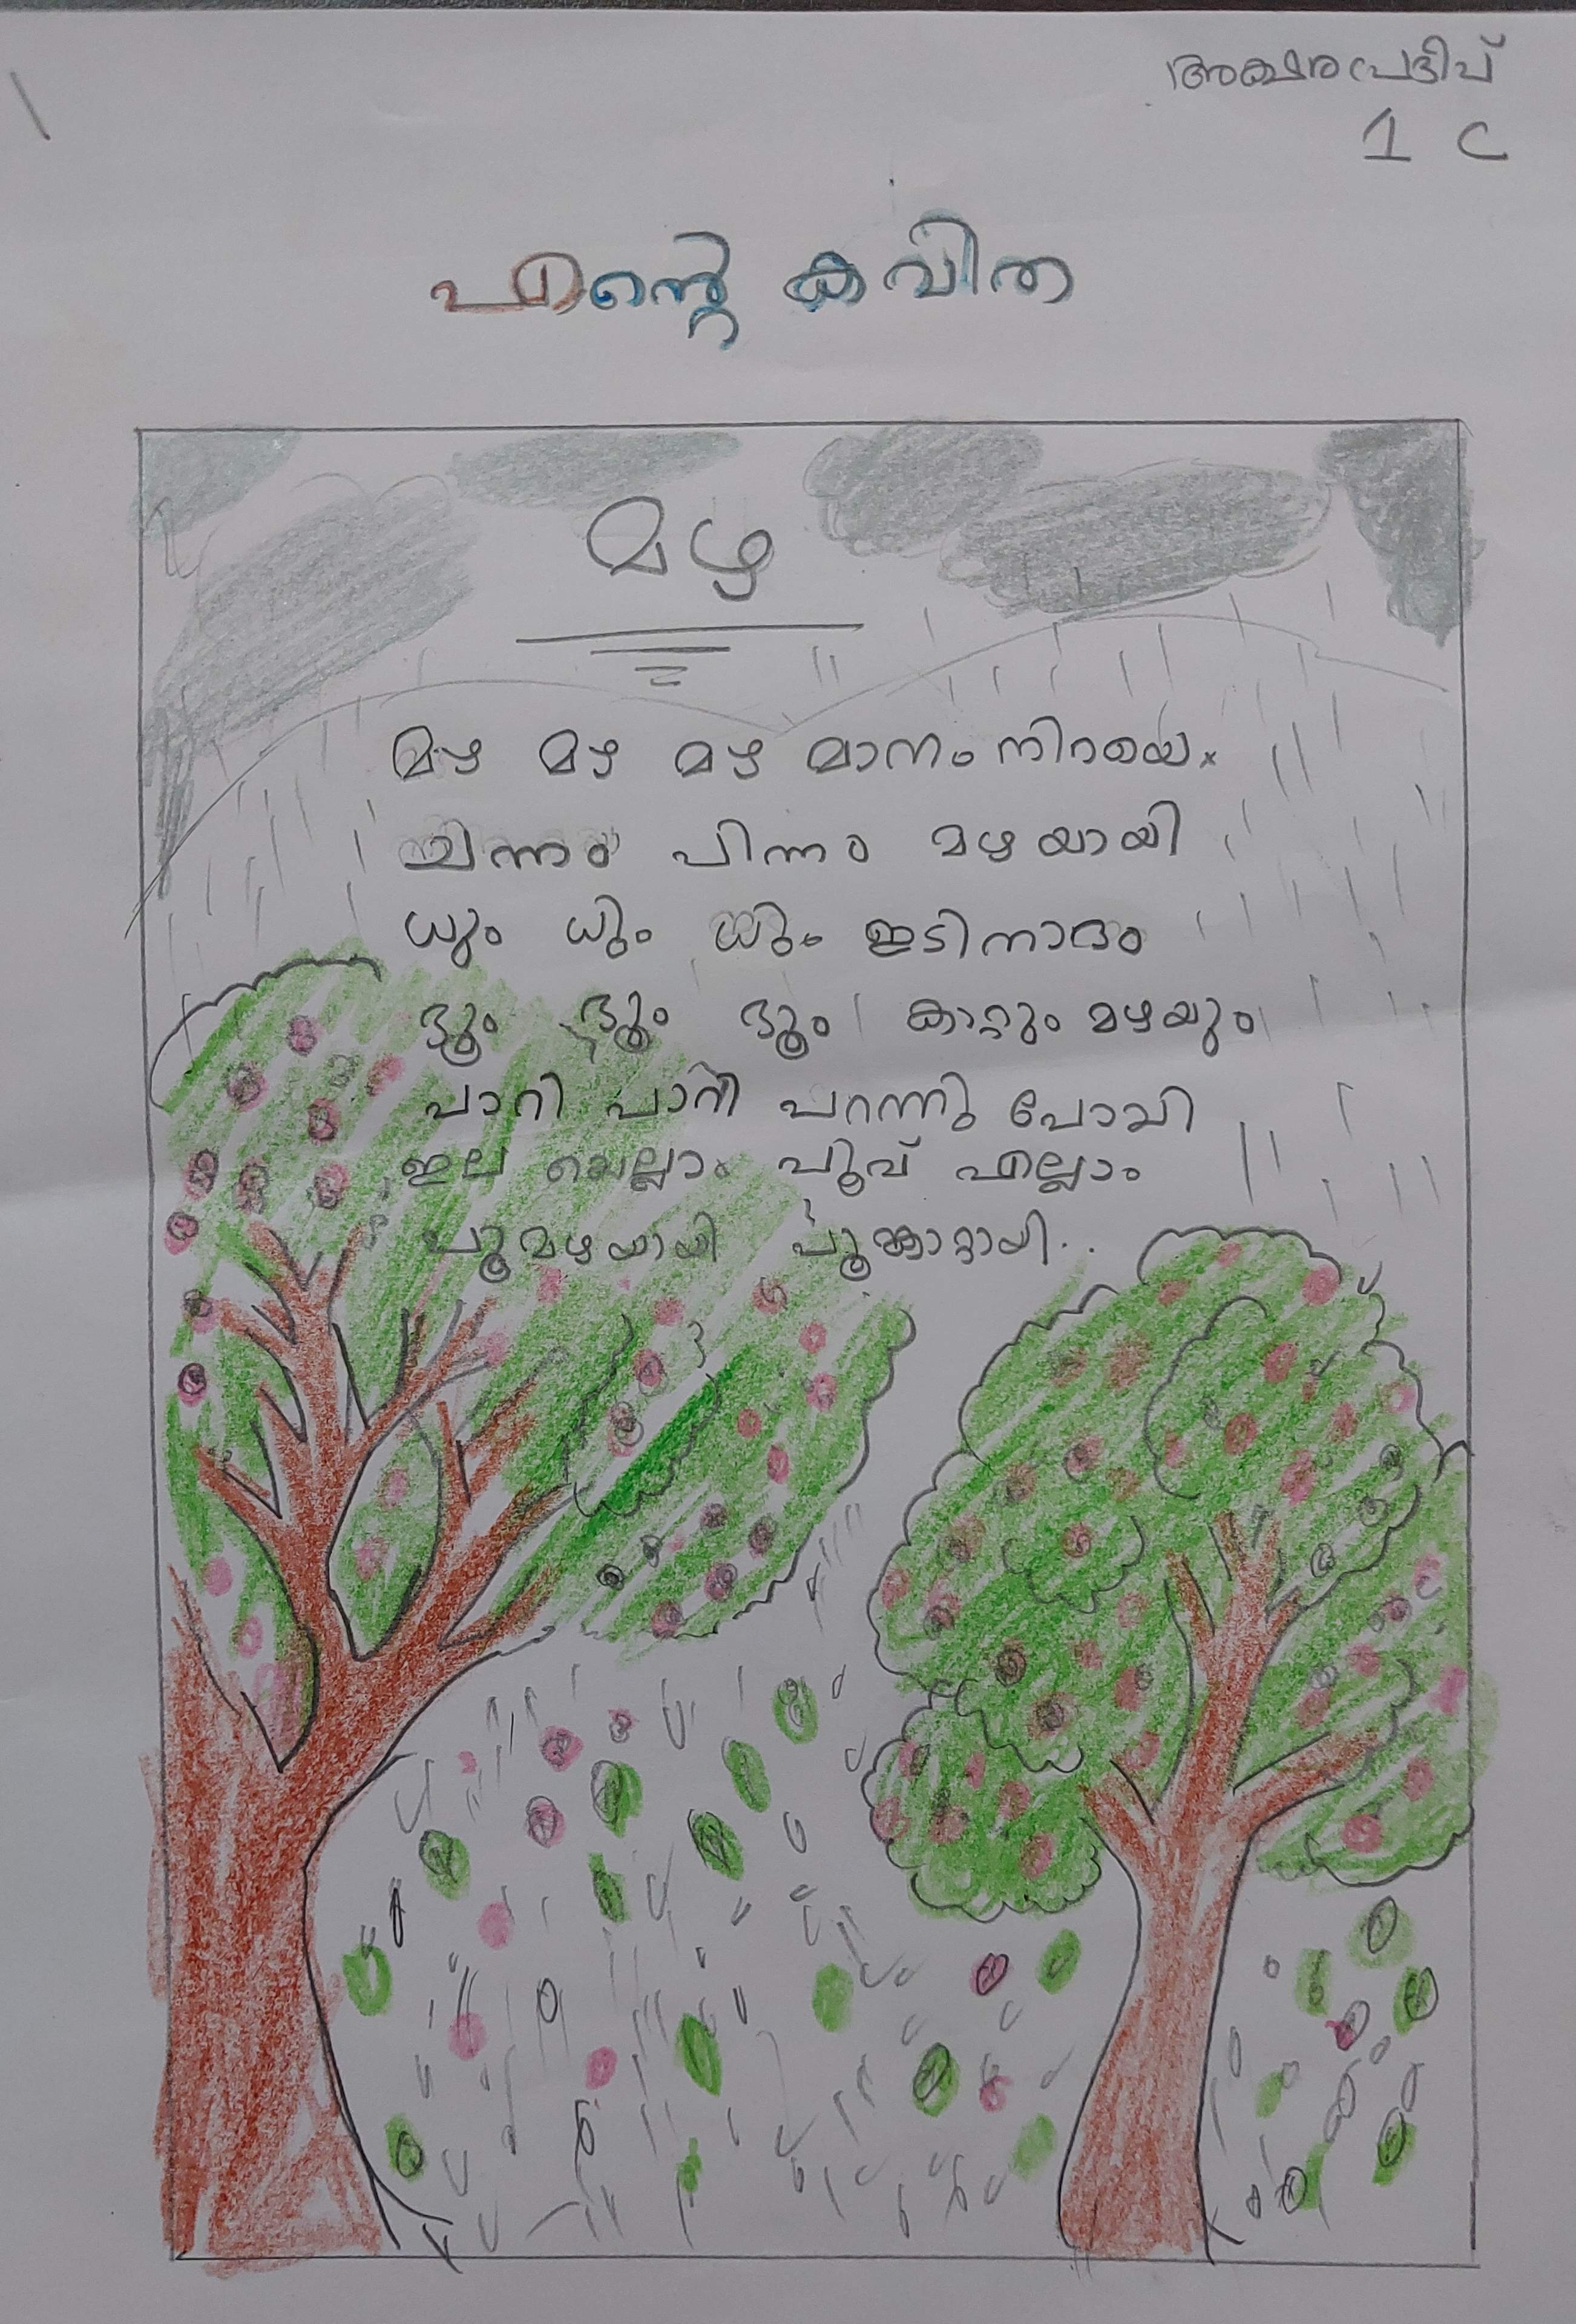 അക്ഷര പ്രദീപ്
1 C
എന്റെ കവിത
മഴ
മഴ മഴ മഴ മാനം നിറയെ
ചിന്നം പിന്നം മഴയായി
ധും ധിം ധിം ഇടിനാദം
ദ്രൂം ദ്രൂം ദ്രൂം കാറ്റും മഴയും
പാറി പാറി പറന്നു പോയി
ഇല യെല്ലാം പൂവ് എല്ലാം
പൂമഴയായി പൂങ്കാറ്റായി..